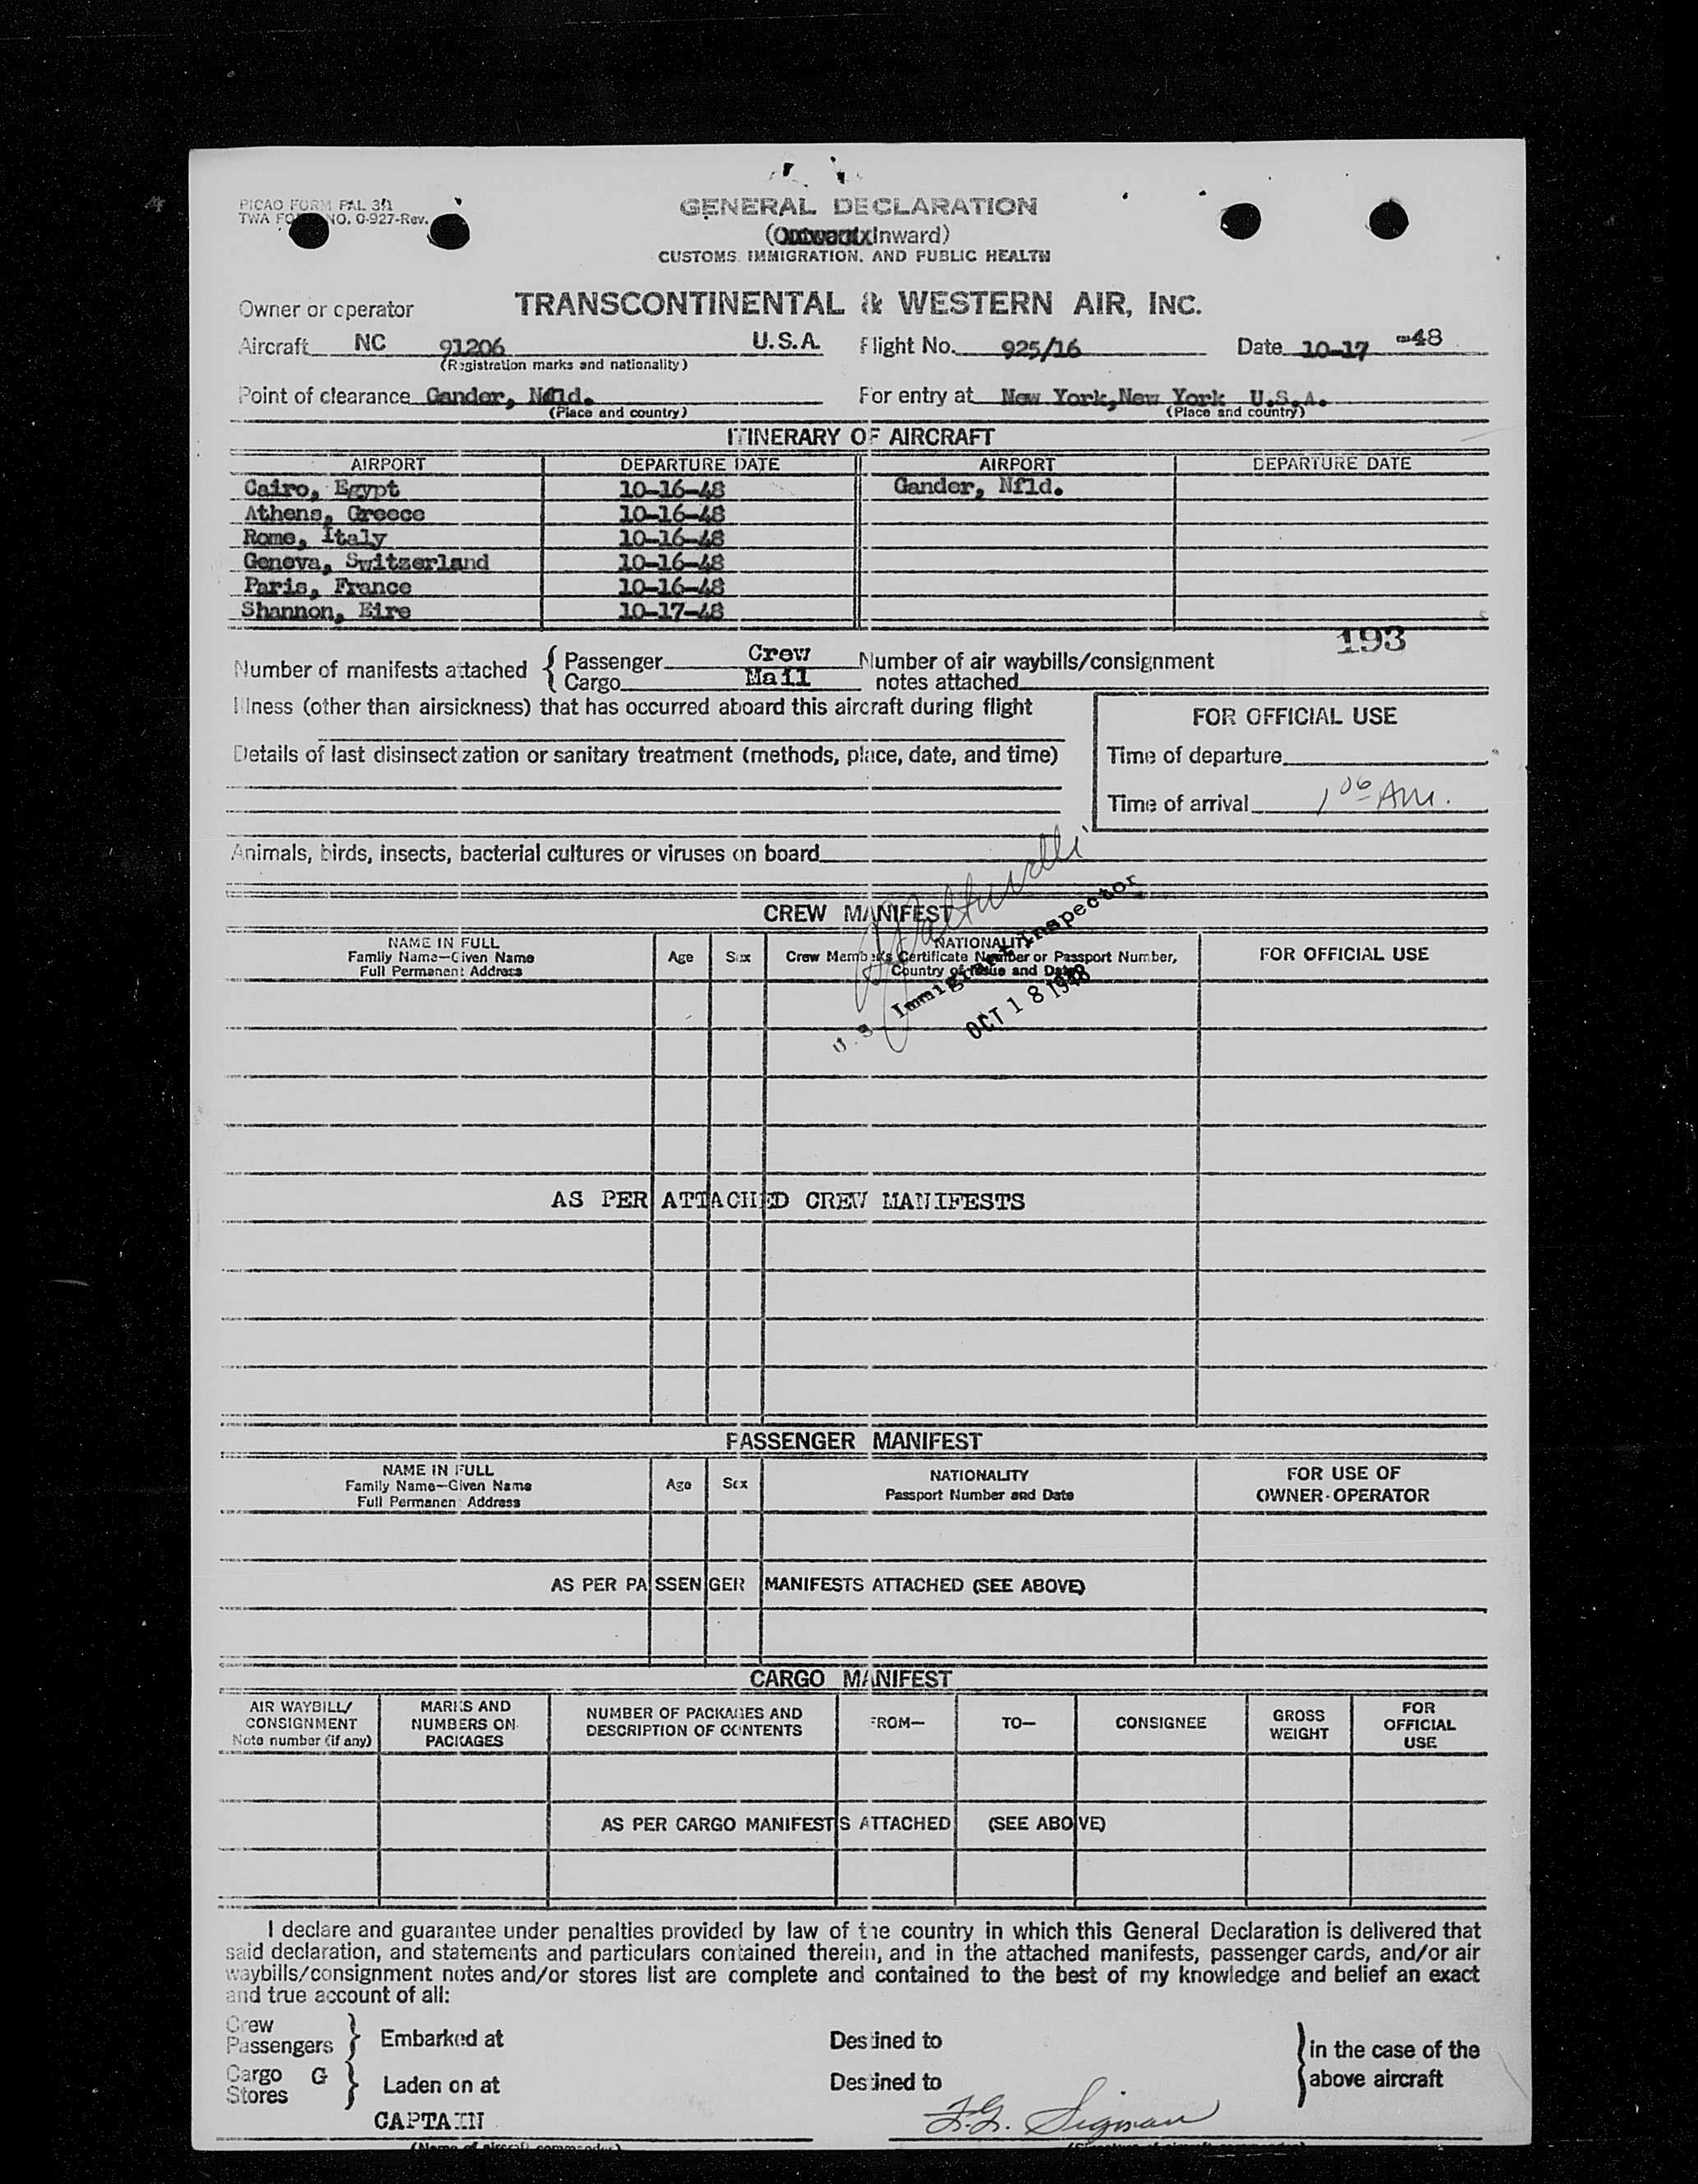 PICAO FORM FAL 3/1
TWA FO NO. 0-927-Rev.
GENERAL DECLARATION
(Inward)
CUSTOMS, IMMIGRATION, AND PUBLIC HEALTH
Owner or operator TRANSCONTINENTAL & WESTERN AIR, INC.
Aircraft NC 91206 U.S.A. Flight No. 925/16 Date 10-17-48
(Registration marks and nationality)
Point of clearance Gander, Nfld. For entry at New York, New York U.S.A.
(Place and country) (Place and country)
ITINERARY OF AIRCRAFT
AIRPORT DEPARTURE DATE AIRPORT DEPARTURE DATE
Cairo, Egypt 10-16-48 Gander, Nfld.
Athens, Greece 10-16-48
Rome, Italy 10-16-48
Geneva, Switzerland 10-16-48
Paris, France 10-16-48
Shannon, Eire 10-17-48
193
Number of manifests attached { Passenger Crew Number of air waybills/consignment
Cargo Mail notes attached
Illness (other than airsickness) that has occurred aboard this aircraft during flight
FOR OFFICIAL USE
Details of last disinsectization or sanitary treatment (methods, place, date, and time)
Time of departure
Time of arrival 1 06 AM.
Animals, birds, insects, bacterial cultures or viruses on board
CREW MANIFEST
NAME IN FULL
Family Name—Given Name
Full Permanent Address
Age Sex
NATIONALITY
Crew Member's Certificate Number or Passport Number,
Country of Issue and Date
FOR OFFICIAL USE
U.S. Immigrant Inspector
OCT 18 1948
AS PER ATTACHED CREW MANIFESTS
PASSENGER MANIFEST
NAME IN FULL
Family Name—Given Name
Full Permanent Address
Age Sex
NATIONALITY
Passport Number and Date
FOR USE OF
OWNER-OPERATOR
AS PER PASSENGER MANIFESTS ATTACHED (SEE ABOVE)
CARGO MANIFEST
AIR WAYBILL/
CONSIGNMENT
Note number (if any)
MARKS AND
NUMBERS ON
PACKAGES
NUMBER OF PACKAGES AND
DESCRIPTION OF CONTENTS
FROM—
TO—
CONSIGNEE
GROSS
WEIGHT
FOR
OFFICIAL
USE
AS PER CARGO MANIFESTS ATTACHED (SEE ABOVE)
I declare and guarantee under penalties provided by law of the country in which this General Declaration is delivered that
said declaration, and statements and particulars contained therein, and in the attached manifests, passenger cards, and/or air
waybills/consignment notes and/or stores list are complete and contained to the best of my knowledge and belief an exact
and true account of all:
Crew
Passengers } Embarked at Destined to } in the case of the
Cargo G
Stores } Laden on at Destined to above aircraft
CAPTAIN F.G. Sigman
(Name of aircraft commander) (Signature of aircraft commander)